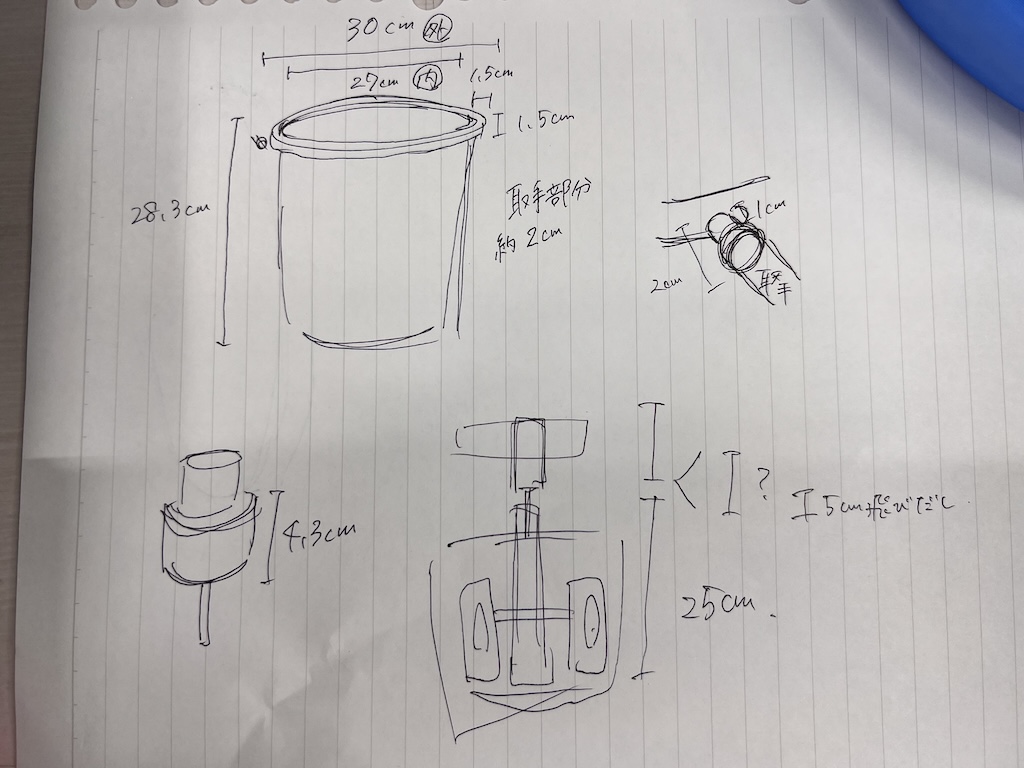 30cm 外
27cm 内
1.5cm
1.5cm
28.3cm
取手部分
約2cm
1cm
2cm
4.3cm
?
5cm飛びだし
25cm.